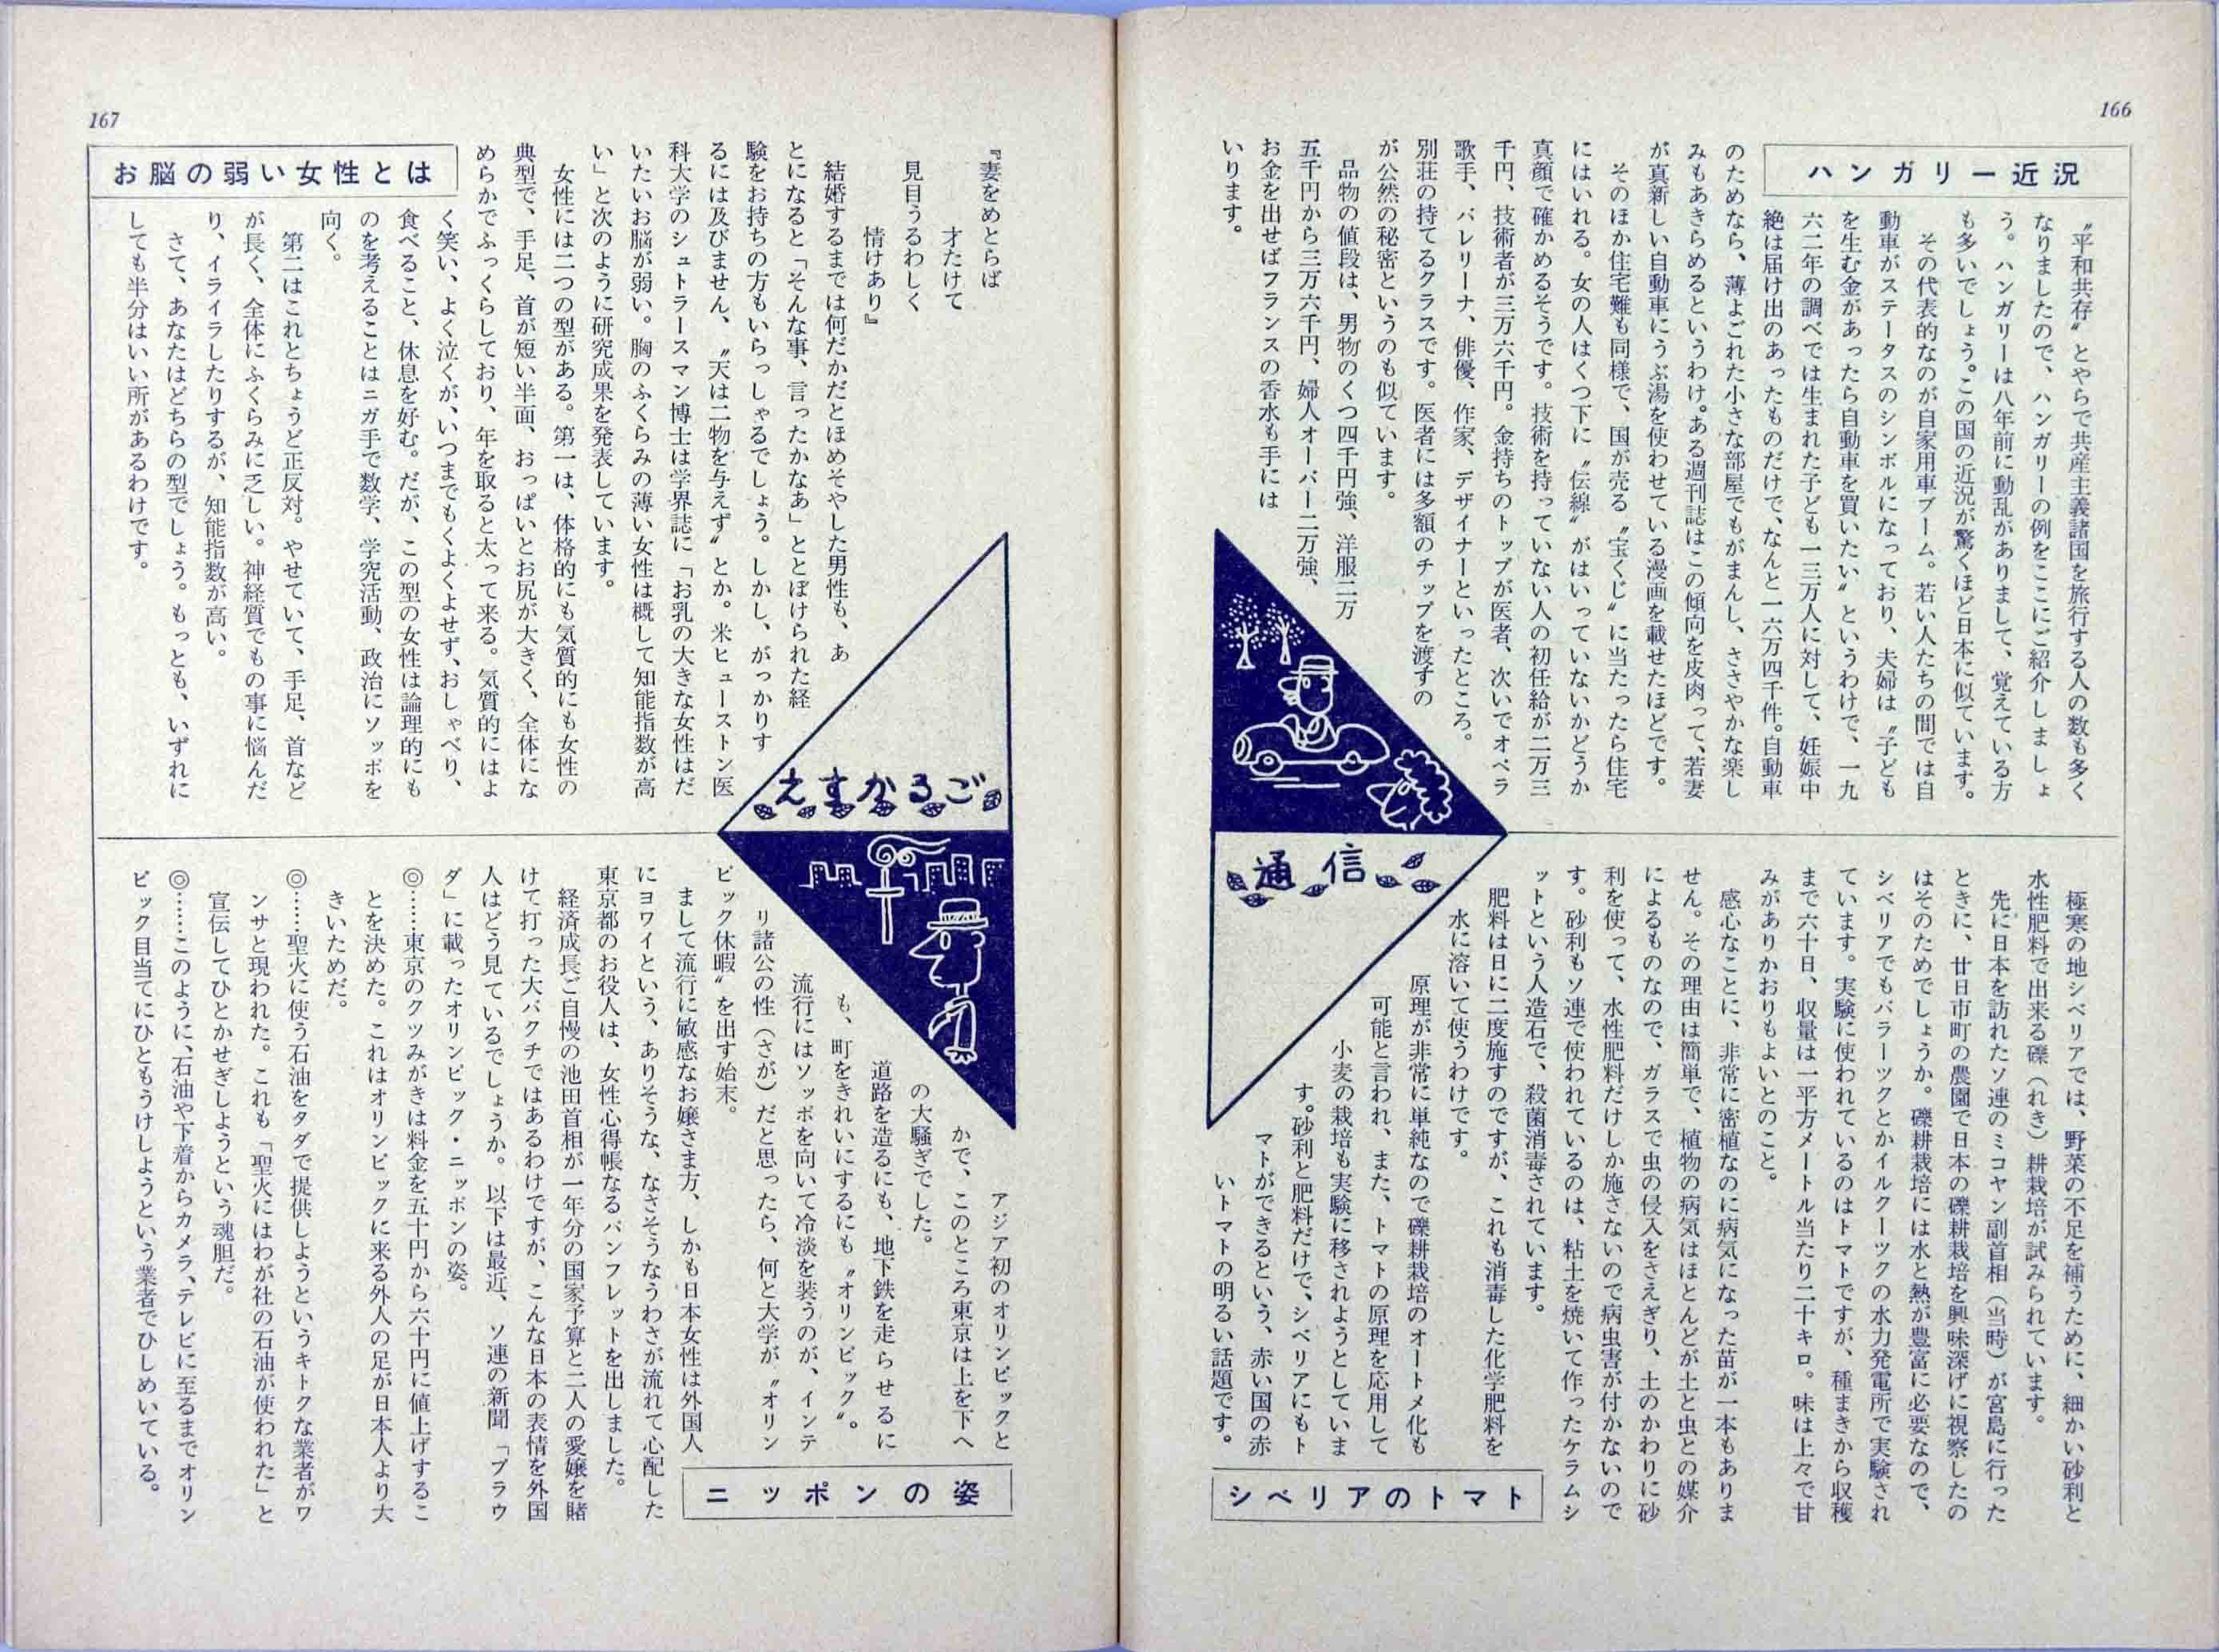 166
ハンガリー近況
〝平和共存〟とやらで共産主義諸国を旅行する人の数も多く
なりましたので、ハンガリーの例をここにご紹介しましょ
う。ハンガリーは八年前に動乱がありまして、覚えている方
も多いでしょう。この国の近況が驚くほど日本に似ています。
その代表的なのが自家用車ブーム。若い人たちの間では自
動車がステータスのシンボルになっており、夫婦は〝子ども
を生む金があったら自動車を買いたい〟というわけで、一九
六二年の調べでは生まれた子ども一三万人に対して、妊娠中
絶は届け出のあったものだけで、なんと一六万四千件。自動車
のためなら、薄よごれた小さな部屋でもがまんし、ささやかな楽し
みもあきらめるというわけ。ある週刊誌はこの傾向を皮肉って、若妻
が真新しい自動車にうぶ湯を使わせている漫画を載せたほどです。
そのほか住宅難も同様で、国が売る〝宝くじ〟に当たったら住宅
にはいれる。女の人はくつ下に〝伝線〟がはいっていないかどうか
真顔で確かめるそうです。技術を持っていない人の初任給が二万三
千円、技術者が三万六千円。金持ちのトップが医者、次いでオペラ
歌手、バレリーナ、俳優、作家、デザイナーといったところ。
別荘の持てるクラスです。医者には多額のチップを渡すの
が公然の秘密というのも似ています。
品物の値段は、男物のくつ四千円強、洋服二万
五千円から三万六千円、婦人オーバー二万強、
お金を出せばフランスの香水も手には
いります。
通信
シベリアのトマト
極寒の地シベリアでは、野菜の不足を補うために、細かい砂利と
水性肥料で出来る礫（れき）耕栽培が試みられています。
先に日本を訪れたソ連のミコヤン副首相（当時）が宮島に行った
ときに、廿日市町の農園で日本の礫耕栽培を興味深げに視察したの
はそのためでしょうか。礫耕栽培には水と熱が豊富に必要なので、
シベリアでもバラーツックとかイルクーツックの水力発電所で実験され
ています。実験に使われているのはトマトですが、種まきから収穫
まで六十日、収量は一平方メートル当たり二十キロ。味は上々で甘
みがありかおりもよいとのこと。
感心なことに、非常に密植なのに病気になった苗が一本もありま
せん。その理由は簡単で、植物の病気はほとんどが土と虫との媒介
によるものなので、ガラスで虫の侵入をさえぎり、土のかわりに砂
利を使って、水性肥料だけしか施さないので病虫害が付かないので
す。砂利もソ連で使われているのは、粘土を焼いて作ったケラムシ
ットという人造石で、殺菌消毒されています。
肥料は日に二度施すのですが、これも消毒した化学肥料を
水に溶いて使うわけです。
原理が非常に単純なので礫耕栽培のオートメ化も
可能と言われ、また、トマトの原理を応用して
小麦の栽培も実験に移されようとしていま
す。砂利と肥料だけで、シベリアにもト
マトができるという、赤い国の赤
いトマトの明るい話題です。
167
えすかるご
『妻をめとらば
才たけて
見目うるわしく
情けあり』
結婚するまでは何だかだとほめそやした男性も、あ
とになると「そんな事、言ったかなあ」ととぼけられた経
験をお持ちの方もいらっしゃるでしょう。しかし、がっかりす
るには及びません、〝天は二物を与えず〟とか。米ヒューストン医
科大学のシュトラースマン博士は学界誌に「お乳の大きな女性はだ
いたいお脳が弱い。胸のふくらみの薄い女性は概して知能指数が高
い」と次のように研究成果を発表しています。
女性には二つの型がある。第一は、体格的にも気質的にも女性の
典型で、手足、首が短い半面、おっぱいとお尻が大きく、全体にな
めらかでふっくらしており、年を取ると太って来る。気質的にはよ
く笑い、よく泣くが、いつまでもくよくよせず、おしゃべり、
食べること、休息を好む。だが、この型の女性は論理的にも
のを考えることはニガ手で数学、学究活動、政治にソッポを
向く。
第二はこれとちょうど正反対。やせていて、手足、首など
が長く、全体にふくらみに乏しい。神経質でもの事に悩んだ
り、イライラしたりするが、知能指数が高い。
さて、あなたはどちらの型でしょう。もっとも、いずれに
しても半分はいい所があるわけです。
お脳の弱い女性とは
ニッポンの姿
アジア初のオリンピックと
かで、このところ東京は上を下へ
の大騒ぎでした。
道路を造るにも、地下鉄を走らせるに
も、町をきれいにするにも〝オリンピック〟。
流行にはソッポを向いて冷淡を装うのが、インテ
リ諸公の性（さが）だと思ったら、何と大学が〝オリン
ピック休暇〟を出す始末。
まして流行に敏感なお嬢さま方、しかも日本女性は外国人
にヨワイという、ありそうな、なさそうなうわさが流れて心配した
東京都のお役人は、女性心得帳なるパンフレットを出しました。
経済成長ご自慢の池田首相が一年分の国家予算と二人の愛嬢を賭
けて打った大バクチではあるわけですが、こんな日本の表情を外国
人はどう見ているでしょうか。以下は最近、ソ連の新聞「プラウ
ダ」に載ったオリンピック・ニッポンの姿。
◎……東京のクツみがきは料金を五十円から六十円に値上げするこ
とを決めた。これはオリンピックに来る外人の足が日本人より大
きいためだ。
◎……聖火に使う石油をタダで提供しようというキトクな業者がワ
ンサと現われた。これも「聖火にはわが社の石油が使われた」と
宣伝してひとかせぎしようという魂胆だ。
◎……このように、石油や下着からカメラ、テレビに至るまでオリン
ピック目当てにひともうけしようという業者でひしめいている。